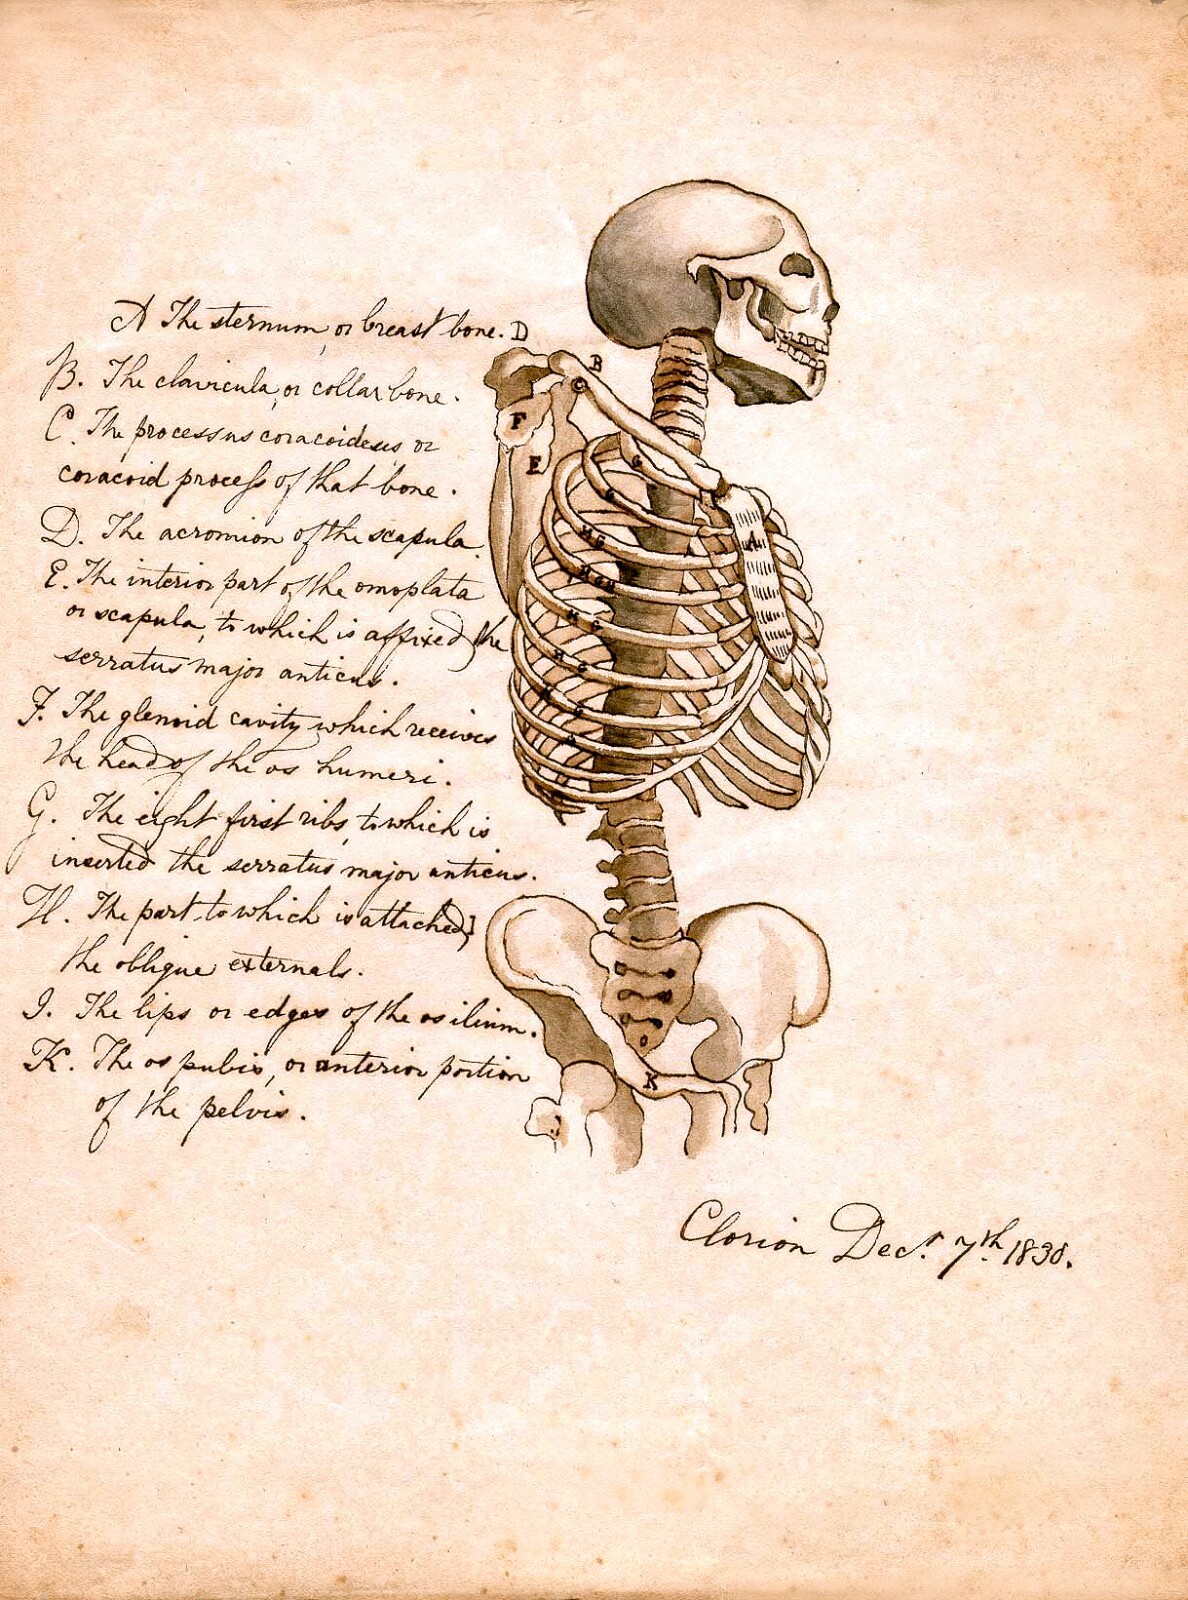 A The sternum, or breast bone.
B. The clavicula, or collar bone.
C. The processus coracoideus or
coracoid process of that bone.
D. The acromion of the scapula
E. The interior part of the omoplata
or scapula, to which is affixed the
serratus major anticus.
F. The glenoid cavity which receives
the head of the os humeri.
G. The eight first ribs, to which is
inserted the serratus major anticus.
H. The part to which is attached
the oblique externals.
I. The lips or edges of the os ilium.
K. The os pubis, or anterior portion
of the pelvis.
D
B
C
F
E
G
G
A
H G
H G H
H G
H G
H G
G
K
Clorion Decr. 7th. 1830.